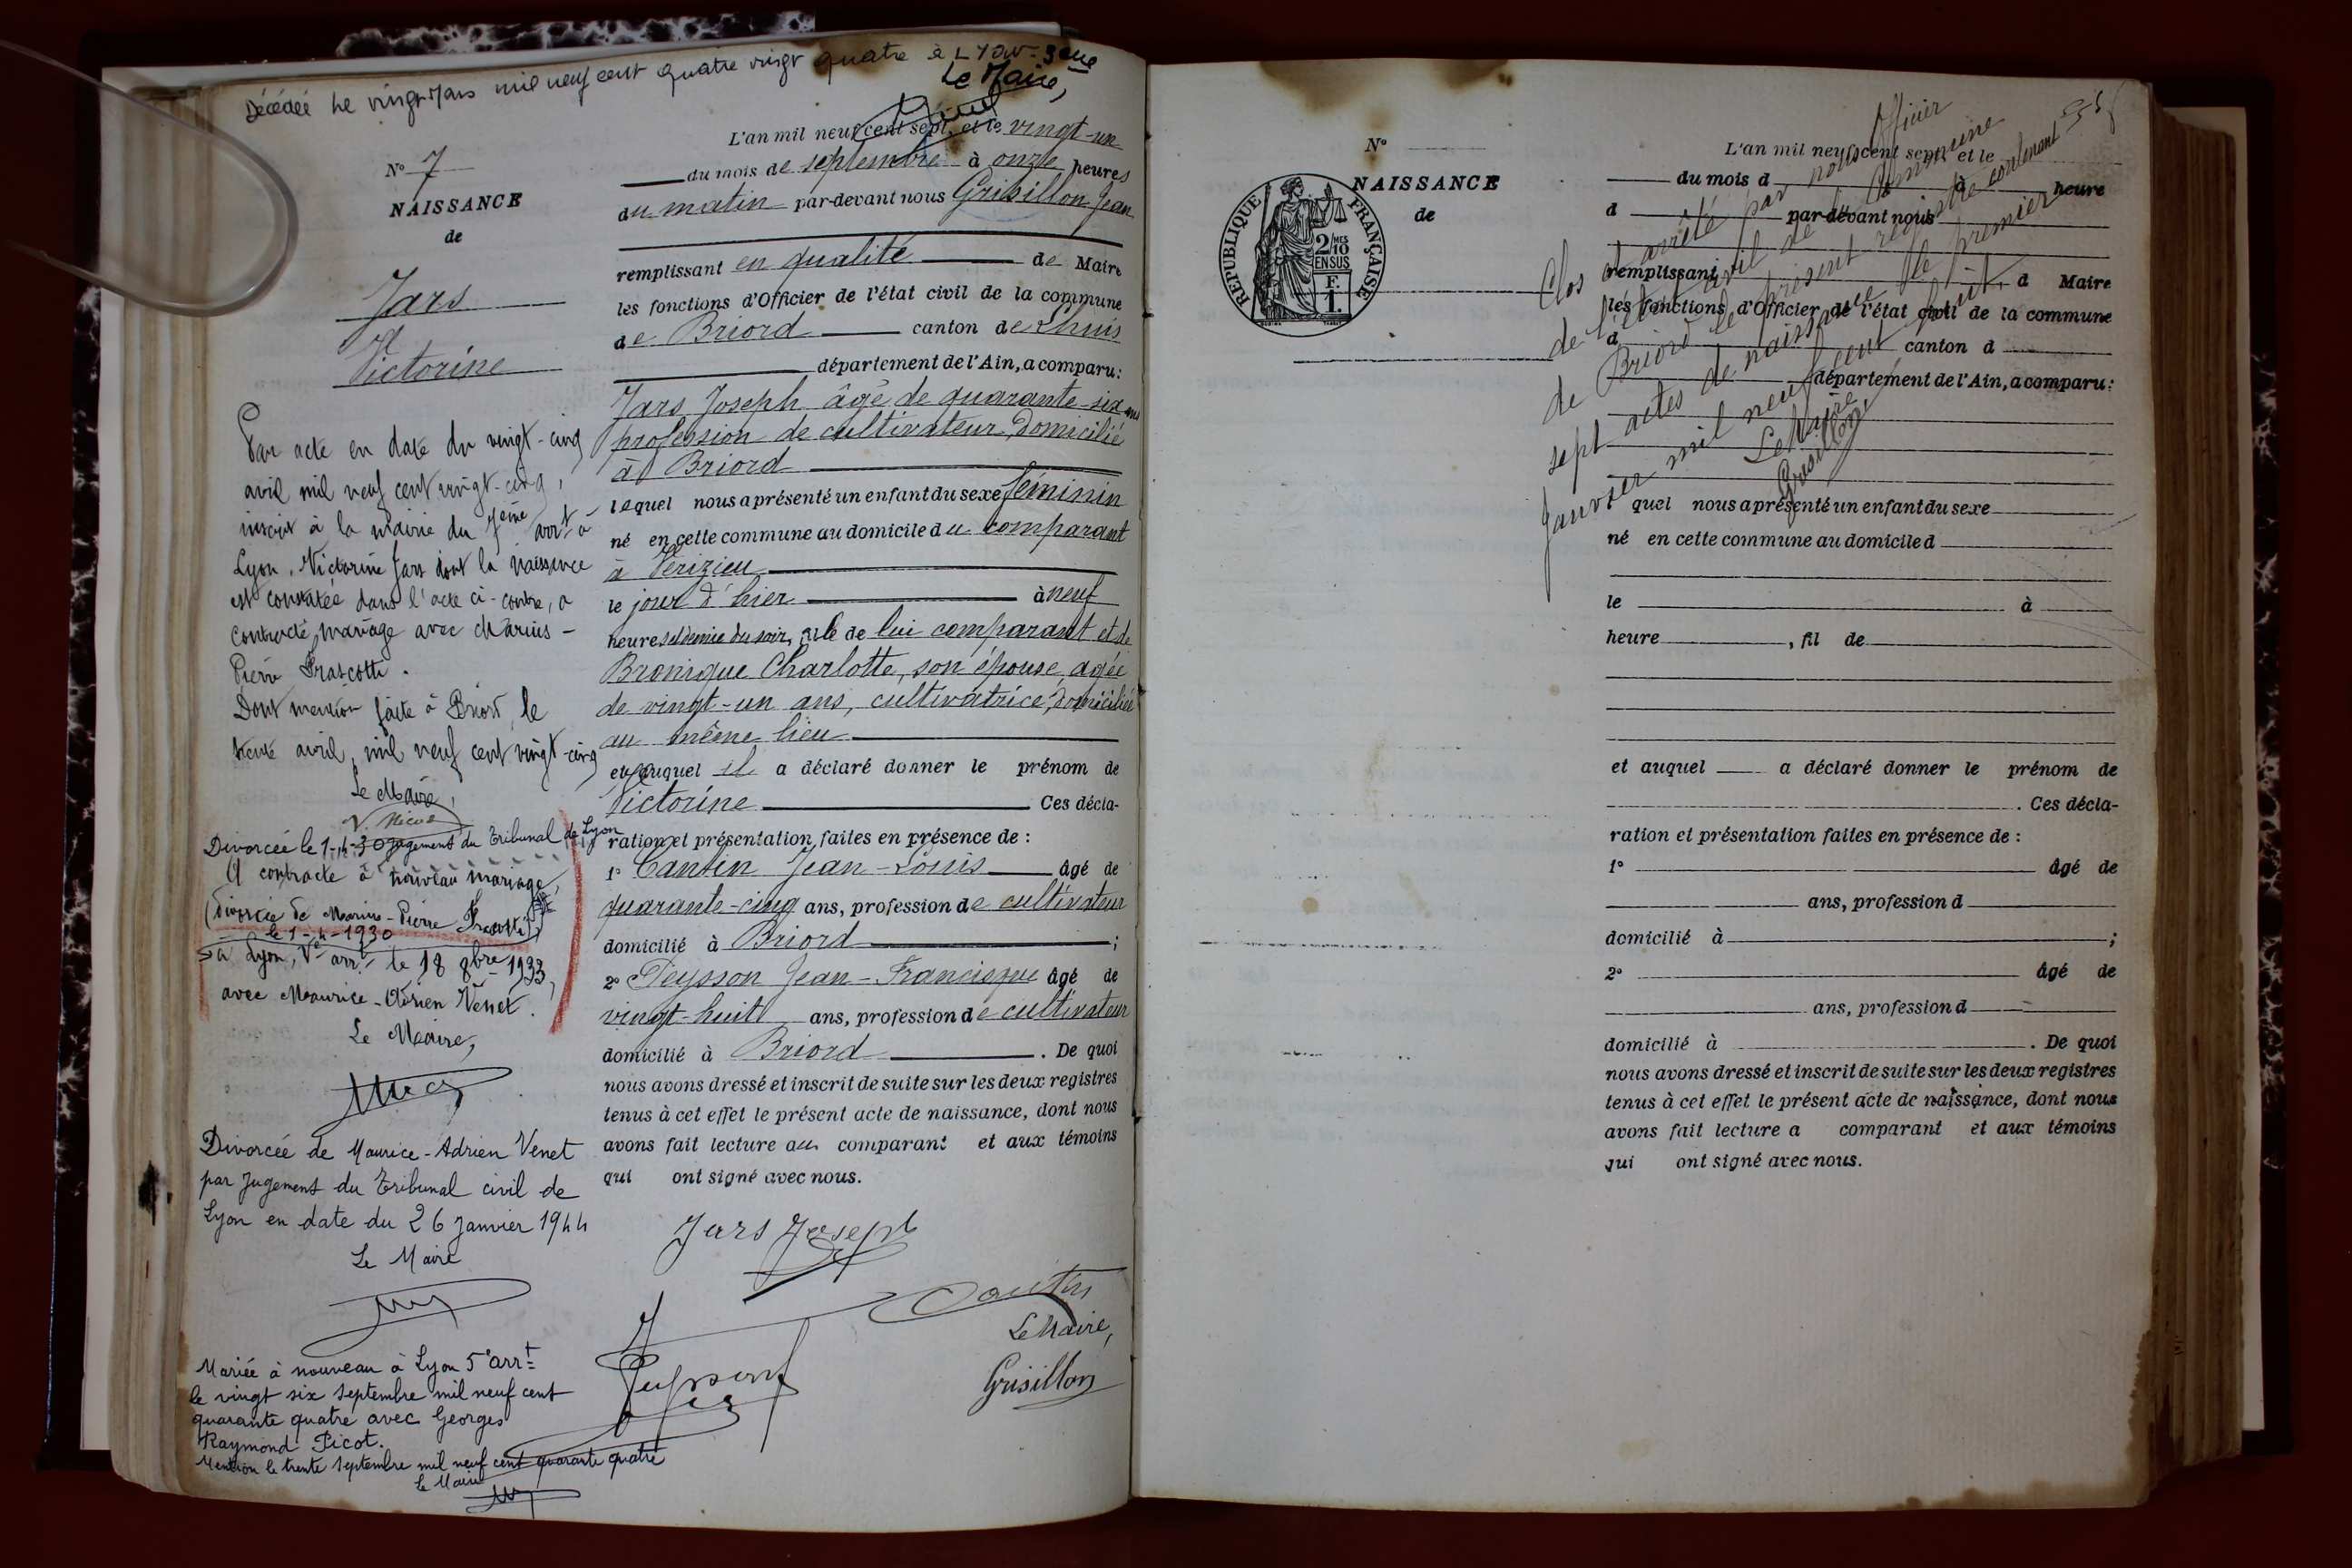 Décédée Le vingt Mars mil neuf cent quatre vingt quatre à LYON 3eme
Le Maire,
N° 7
NAISSANCE
de
Jars
Victorine
Par acte en date du vingt-cinq
avril mil neuf cent vingt-cinq,
inscrit à la mairie du 7ème arrt à
Lyon, Victorine Jars dont la naissance
est constatée dans l'acte ci-contre, a
contracté mariage avec Marius-
Pierre
Dont mention faite à Briord, le
trente avril mil neuf cent vingt-cinq
Le Maire,
Divorcée le 1-4-30 jugement du Tribunal de Lyon
A contracté à nouveau mariage,
(divorcée de Marius-Pierre
le 1-4-1930
à Lyon, Ve arrt le 18 8bre 1933,
avec Maurice-Adrien Venet.
Le Maire,
Divorcée de Maurice-Adrien Venet
par jugement du Tribunal civil de
Lyon en date du 26 janvier 1944
Le Maire
Mariée à nouveau à Lyon 5e arrt
le vingt six septembre mil neuf cent
quarante quatre avec Georges
Raymond Picot.
Mention le trente septembre mil neuf cent quarante quatre
Le Maire
L'an mil neuf cent sept, et le vingt-un
du mois de septembre à onze heures
du matin par-devant nous Grisillon Jean
remplissant en qualité de Maire
les fonctions d'Officier de l'état civil de la commune
de Briord canton de Lhuis
département de l'Ain, a comparu:
Jars Joseph âgé de quarante-six ans
profession de cultivateur, domicilié
à Briord
lequel nous a présenté un enfant du sexe féminin
né en cette commune au domicile du comparant
à Vérizieu
le jour d'hier à neuf
heures et demie du soir, fille de lui comparant et de
Bronique Charlotte, son épouse, agée
de vingt-un ans, cultivatrice, domiciliée
au même lieu
et auquel il a déclaré donner le prénom de
Victorine Ces décla-
ration et présentation faites en présence de :
1° Cantin Jean-Louis âgé de
quarante-cinq ans, profession de cultivateur
domicilié à Briord ;
2° Peysson Jean-Francisque âgé de
vingt-huit ans, profession de cultivateur
domicilié à Briord . De quoi
nous avons dressé et inscrit de suite sur les deux registres
tenus à cet effet le présent acte de naissance, dont nous
avons fait lecture au comparant et aux témoins
qui ont signé avec nous.
Jars Joseph
Cantin
Le Maire,
Grisillon
N°
NAISSANCE
de
RÉPUBLIQUE FRANÇAISE
2/MES
10
EN SUS
F.
1.
L'an mil neuf cent sept, et le
du mois d à heure
d par-devant nous
remplissant d Maire
les fonctions d'Officier de l'état civil de la commune
d canton d
département de l'Ain, a comparu:
quel nous a présenté un enfant du sexe
né en cette commune au domicile d
le à
heure , fil de
et auquel a déclaré donner le prénom de
. Ces décla-
ration et présentation faites en présence de :
1° âgé de
ans, profession d
domicilié à ;
2° âgé de
ans, profession d
domicilié à . De quoi
nous avons dressé et inscrit de suite sur les deux registres
tenus à cet effet le présent acte de naissance, dont nous
avons fait lecture a comparant et aux témoins
qui ont signé avec nous.
Clos et arrêté par nous Officier
de l'état civil de la Commune
de Briord le présent registre contenant
sept actes de naissance le premier
Janvier mil neuf cent huit.
Le Maire
Grisillon